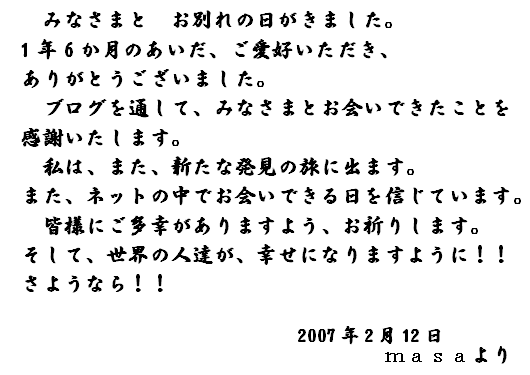 みなさまと　お別れの日がきました。
1年6か月のあいだ、ご愛好いただき、
ありがとうございました。
ブログを通して、みなさまとお会いできたことを
感謝いたします。
私は、また、新たな発見の旅に出ます。
また、ネットの中でお会いできる日を信じています。
皆様にご多幸がありますよう、お祈りします。
そして、世界の人達が、幸せになりますように！！
さようなら！！
2007年2月12日
ｍａｓａより